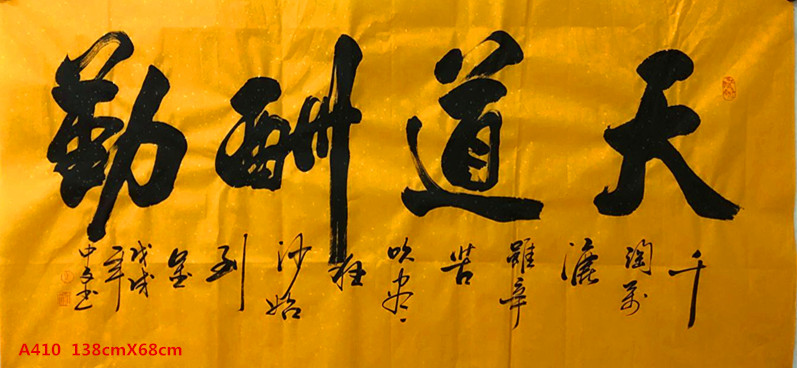 天道酬勤
千淘萬漉雖辛苦吹尽狂沙始到金
戊戌年
A410 138cmX68cm